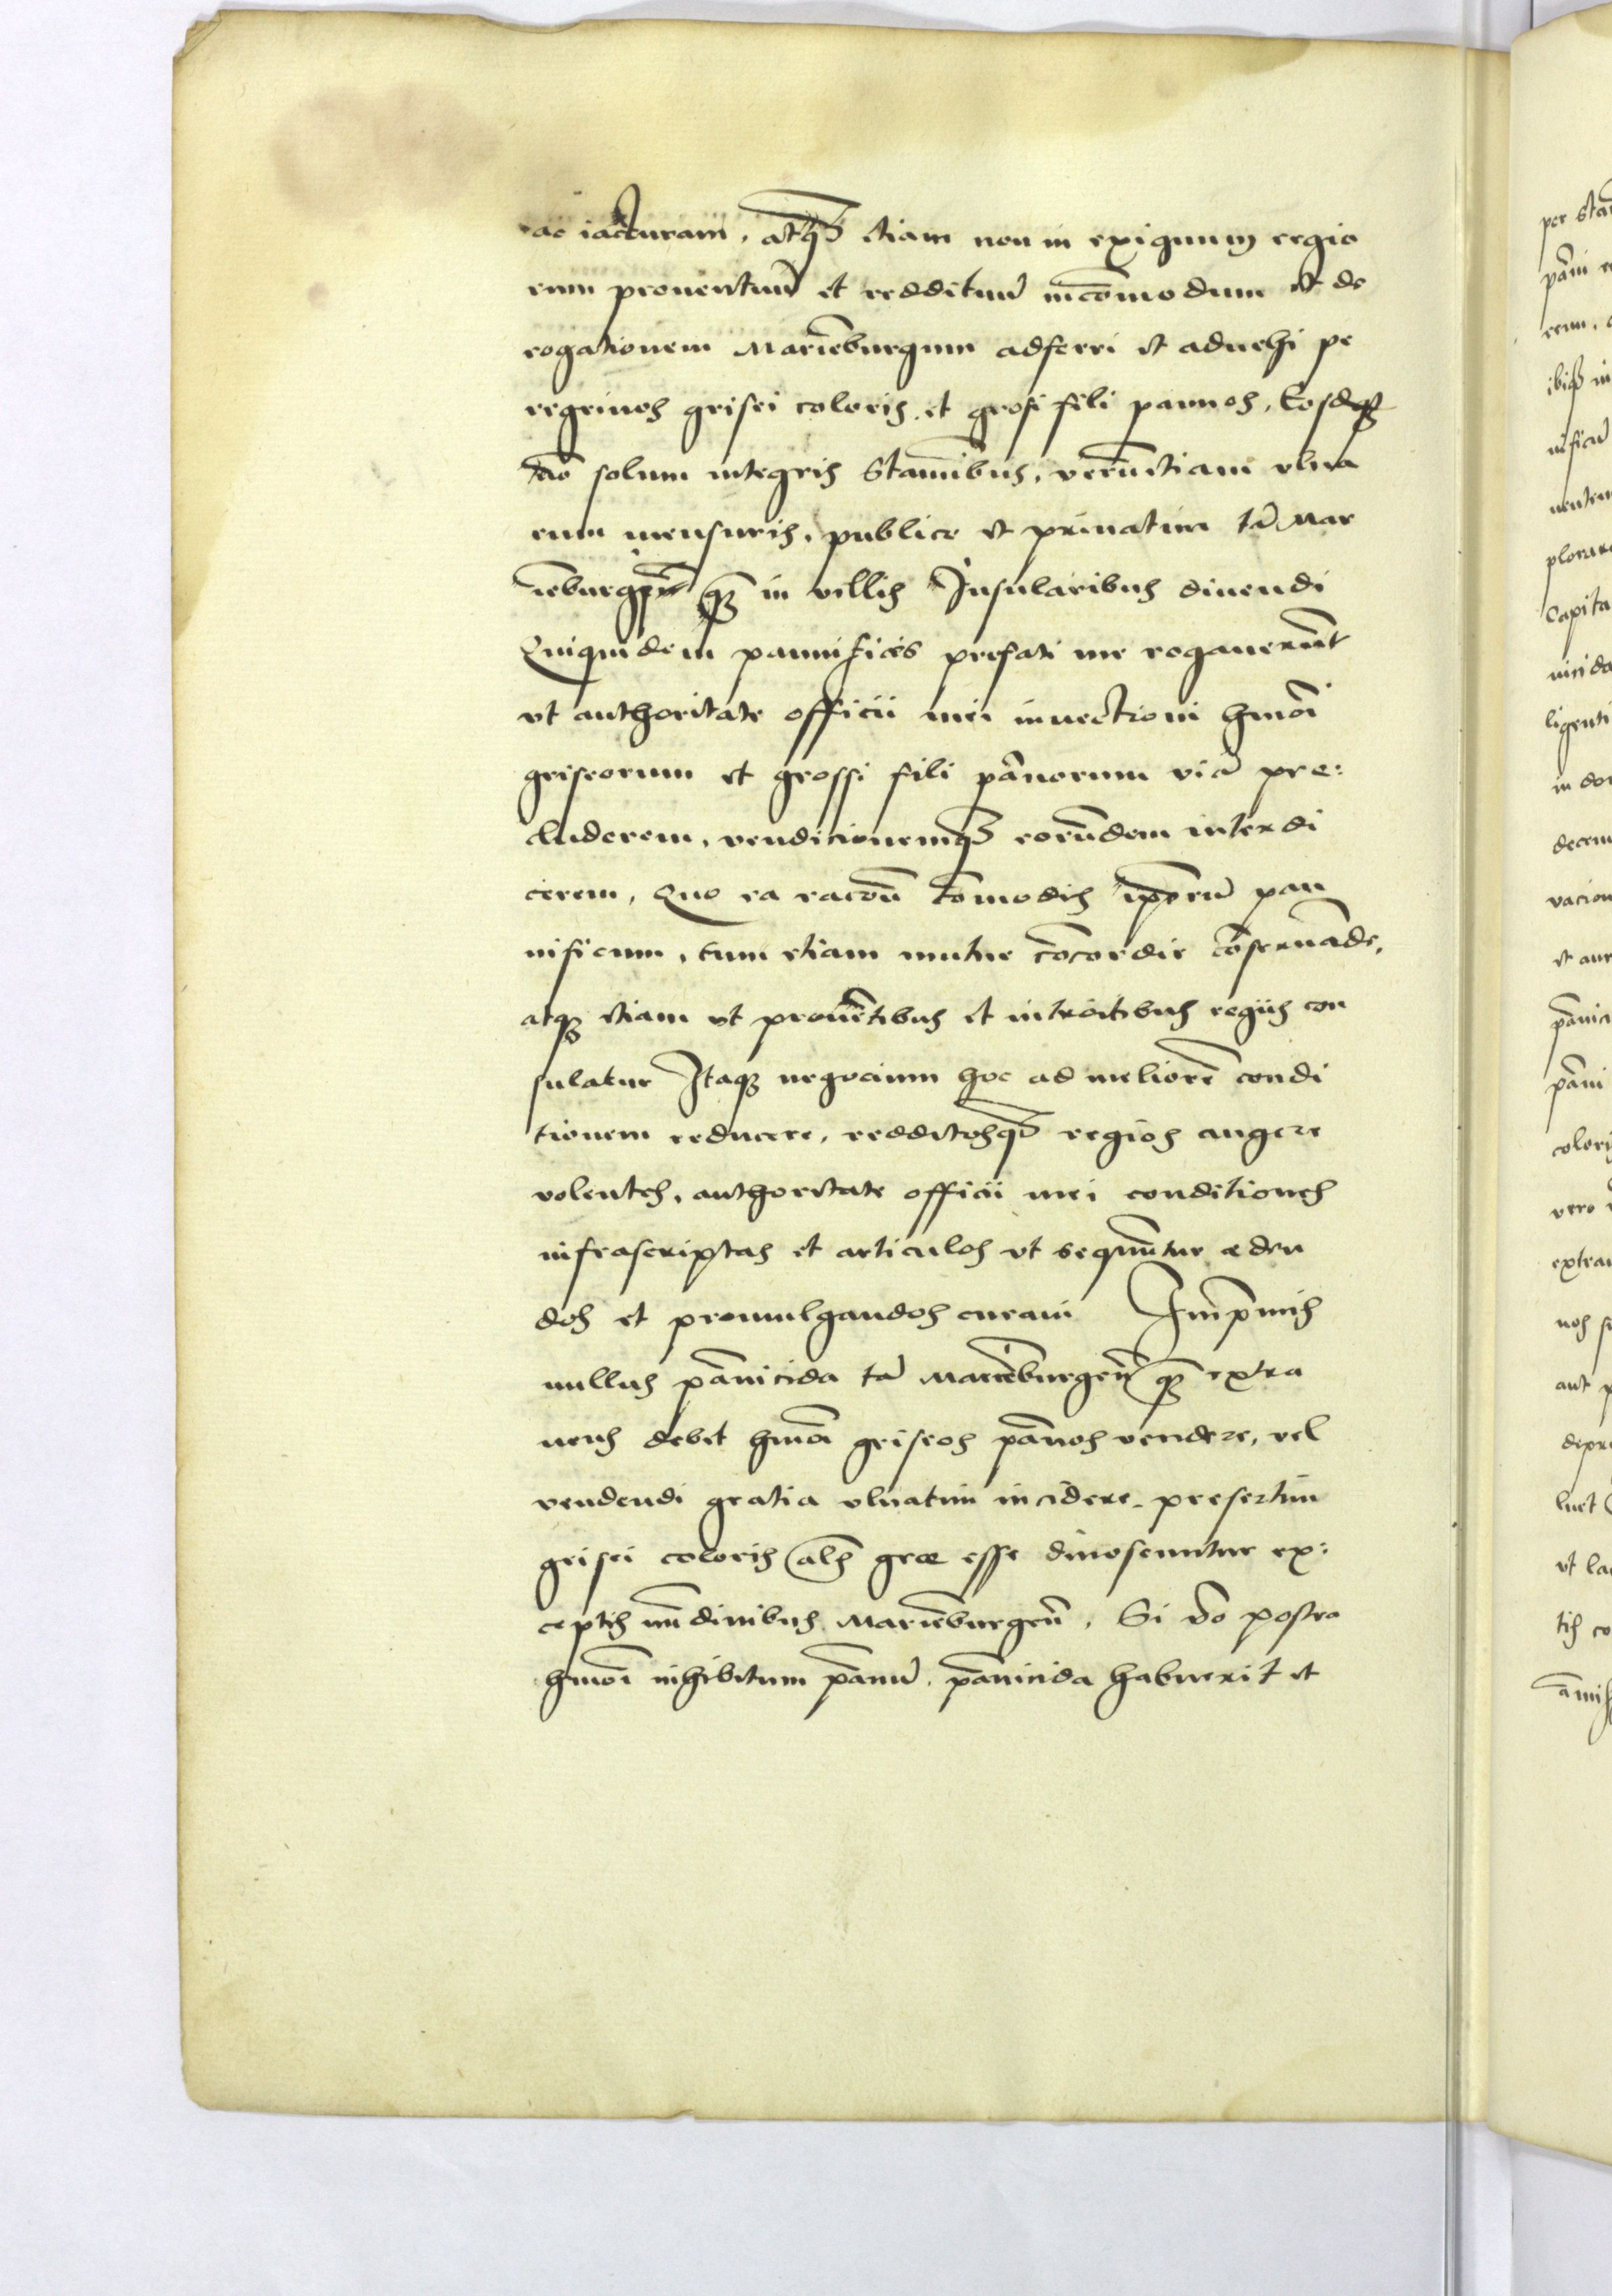 ac iacturam, atqȝ etiam non in exiguum regio
rum prouentuū et reddituū incōmodum et de
rogationem Mariēburgum adferri et aduehi pe
regrinos grisei coloris et grosi fili pannos, Eosdqȝ
nō solum integris Stamībus, verūetiam vlna
rum mensuris, publice et priuatim tā Mar
iēburgeñ qȝ in villis Insularibus diuendi
Quiquidem pannifices prefati me rogauerūnt
vt authoritate officii mei inuectioni hmōi
griseorum et grossi fili pānorum viā pre:
cluderem, vendicionemqȝ eorūndem interdi
cerem, Quo ea racōn cōmodis ip̄orū pan
nificum, tum etiam mutue cōcordie cōseruāde,
atqȝ etiam vt prouētibus et introitibus regiis con
sulatur Itaqȝ negocium hoc ad meliorē condi
tionem reducere, redditosqȝ regios augere
volentes, authoritate officii mei conditiones
infrascriptas et articulos vt sequūntur æden
dos et promulgandos curaui Imp̄mis
nullus pānicida tā Mariēburgeñ qȝ extra
neus debet hmōi griseos pānos vendere, vel
vendendi gratia vlnatim incidere, presertim
grisei coloris als grae esse dinoscuntur ex:
ceptis nūdinibus Mariēburgeñ, Si v̄o postea
hmōi inhibitum pānū, pānicida habuerit et